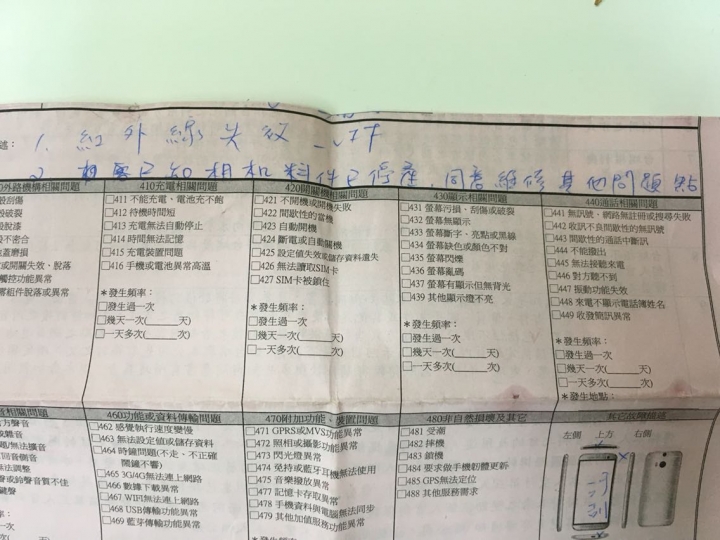 述： 1. 紅外線失效
2. 顧客已知相机料件已停產，同意維修其他問題點
外路機構相關問題
410充電相關問題
420開關機相關問題
430顯示相關問題
440通話相關問題
殼刮傷
殼破裂
殼脫漆
殼不密合
池蓋磨損
或開關失效、脫落
觸控功能異常
零組件脫落或異常
□411 不能充電、電池充不飽
□412 待機時間短
□413 充電無法自動停止
□414 時間無法記憶
□415 充電裝置問題
□416 手機或電池異常高溫
＊發生頻率：
□發生過一次
□幾天一次(______天)
□一天多次(______次)
□421 不開機或開機失敗
□422 間歇性的當機
□423 自動開機
□424 斷電或自動關機
□425 設定值失效或儲存資料遺失
□426 無法讀取SIM卡
□427 SIM卡被鎖住
＊發生頻率：
□發生過一次
□幾天一次(______天)
□一天多次(______次)
□431 螢幕污損、刮傷或破裂
□432 螢幕無顯示
□433 螢幕斷字、亮點或黑線
□434 螢幕缺色或顏色不對
□435 螢幕閃爍
□436 螢幕亂碼
□437 螢幕有顯示但無背光
□439 其他顯示燈不亮
＊發生頻率：
□發生過一次
□幾天一次(______天)
□一天多次(______次)
□441 無訊號、網路無註冊或搜尋失敗
□442 收訊不良間歇性的無訊號
□443 間歇性的通話中斷訊
□444 不能撥出
□445 無法接聽來電
□446 對方聽不到
□447 振動功能失效
□448 來電不顯示電話簿姓名
□449 收發簡訊異常
＊發生頻率：
□發生過一次
□幾天一次(______天)
□一天多次(______次)
＊發生地點：
相關問題
460功能或資料傳輸問題
470附加功能、裝置問題
480非自然損壞及其它
其它故障描述
方聲音
或雜音
回音側音
法調整
聲或鈴聲音質不佳
鍵聲
率：
一次
□462 感覺執行速度變慢
□463 無法設定值或儲存資料
□464 時鐘問題(不走、不正確
鬧鐘不響)
□465 3G/4G無法連上網路
□466 數據下載異常
□467 WIFI無法連上網路
□468 USB傳輸功能異常
□469 藍芽傳輸功能異常
□471 GPRS或MVS功能異常
□472 照相或攝影功能異常
□473 閃光燈異常
□474 免持或藍牙耳機無法使用
□475 音樂撥放異常
□477 記憶卡存取異常
□478 手機資料與電腦無法同步
□479 其他加值服務功能異常
＊發生頻率：
□481 受潮
□482 摔機
□483 鎖機
□484 要求做手機韌體更新
□485 GPS無法定位
□488 其他服務需求
左側 上方 右側